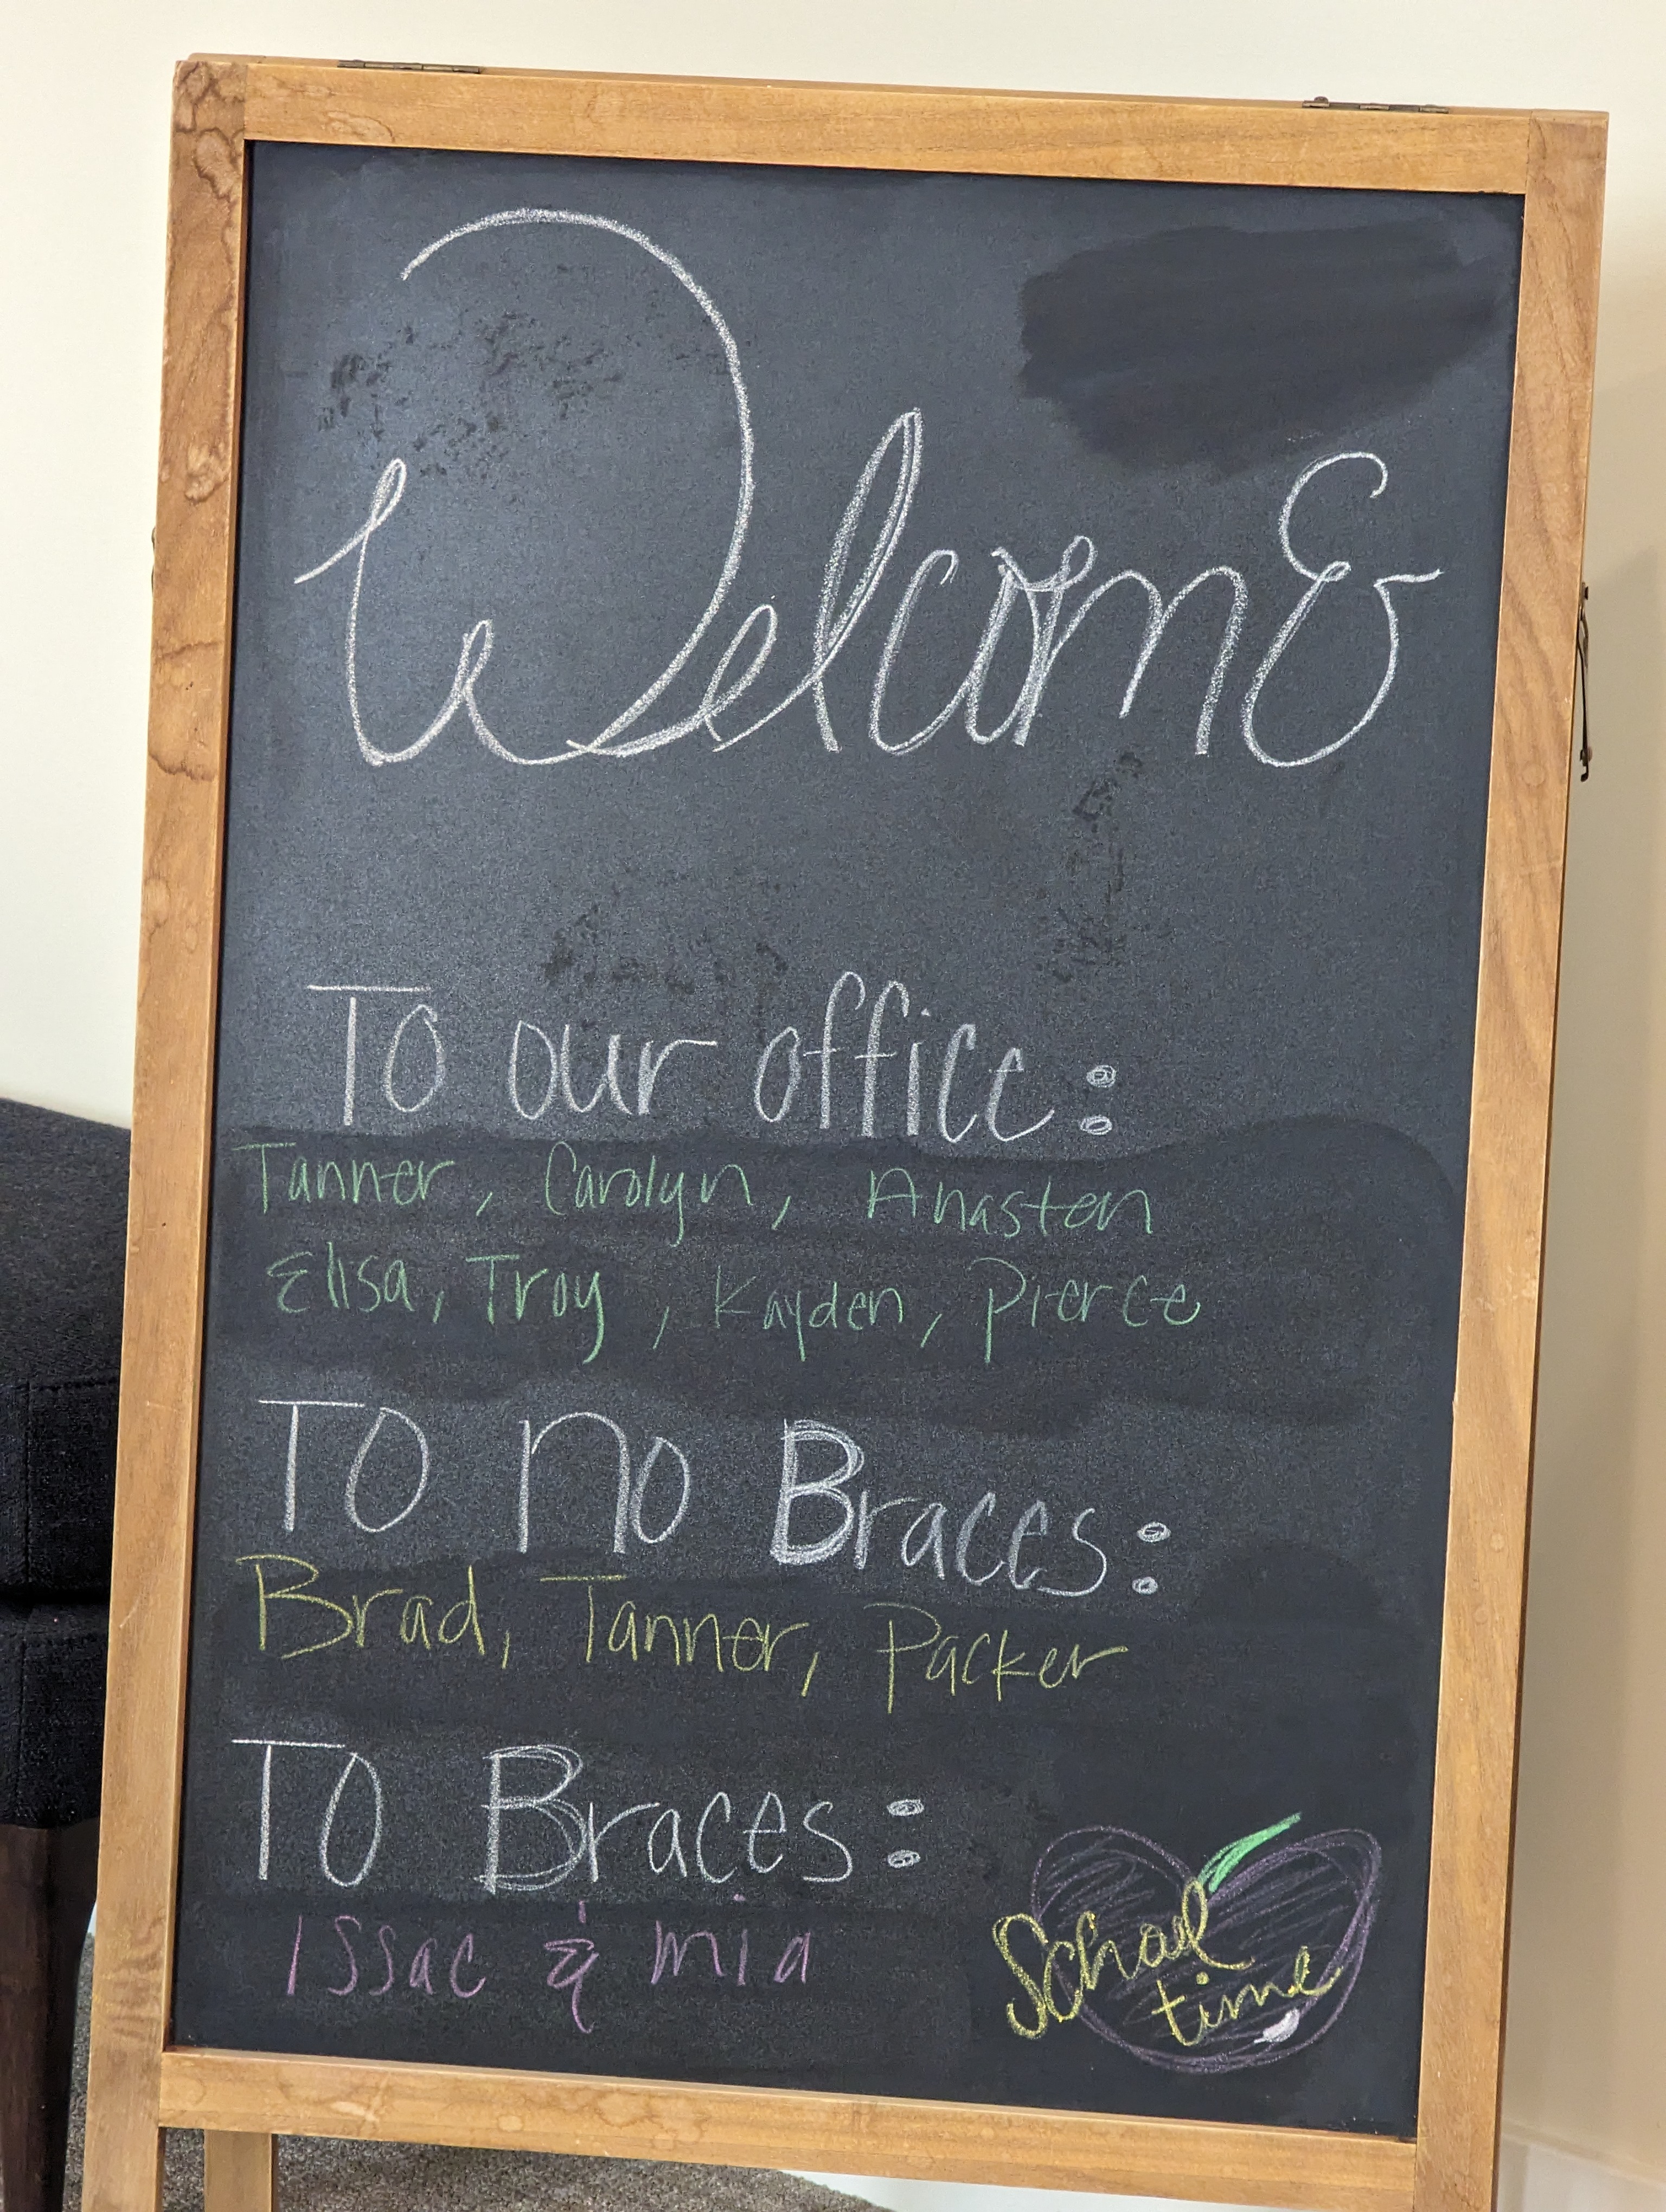 Welcome
To our office:
Tanner, Carolyn, Anasten
Elisa, Troy, Kayden, Pierce
To no Braces:
Brad, Tanner, Packer
To Braces:
Issac & mia
School
time